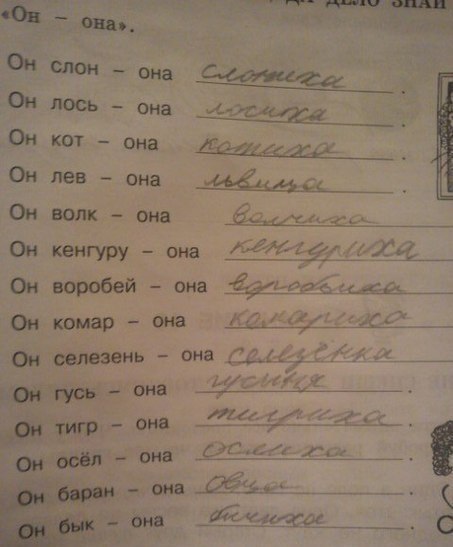 ДЕЛО ЗНАЙ
«Он – она».
Он слон – она слониха.
Он лось – она лосиха.
Он кот – она котиха.
Он лев – она львица.
Он волк – она волчиха
Он кенгуру – она кенгуриха
Он воробей – она воробьиха
Он комар – она комариха
Он селезень – она селезёнка
Он гусь – она гусыня.
Он тигр – она тигриха.
Он осёл – она ослиха.
Он баран – она овца.
Он бык – она бичиха.